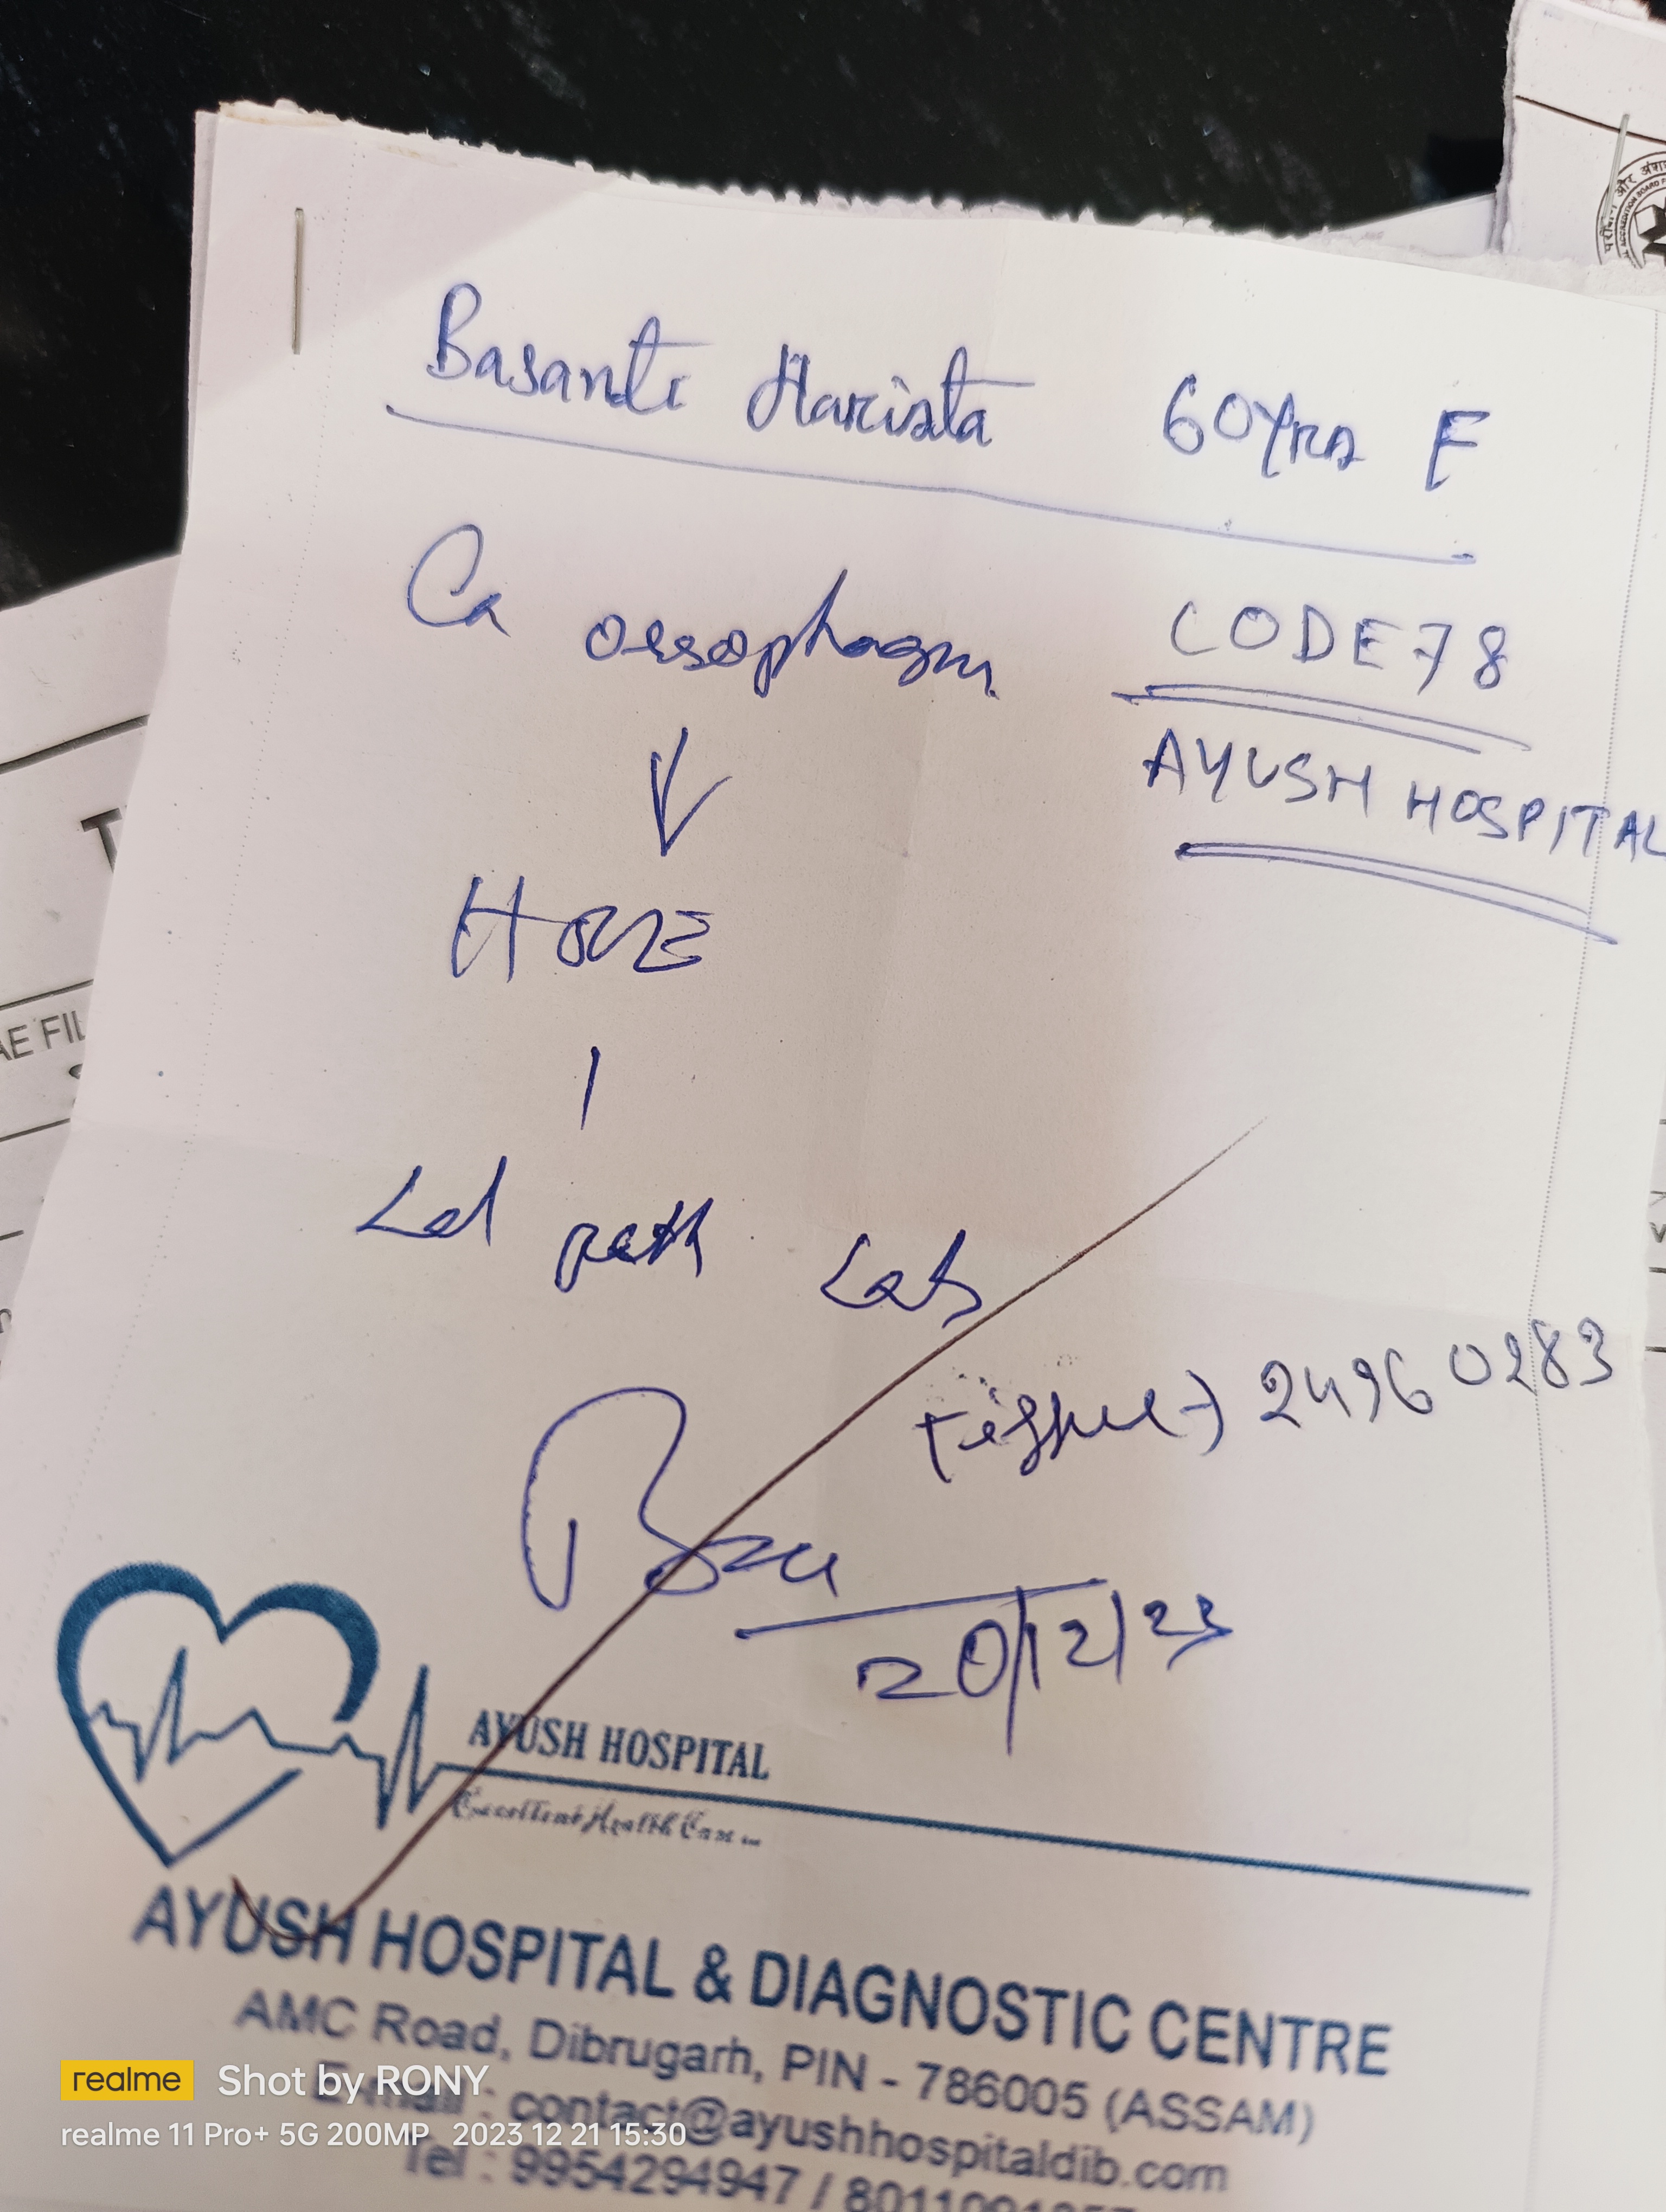 Basanti Harista 60Yrs F
Ca oesophagus CODE 78
AYUSH HOSPITAL
HOPE
Lal path Lab
tissue → 24960283
20/12/23
AYUSH HOSPITAL
Excellent Health Care ...
AYUSH HOSPITAL & DIAGNOSTIC CENTRE
AMC Road, Dibrugarh, PIN - 786005 (ASSAM)
E-mail : contact@ayushhospitaldib.com
Tel : 9954294947 /
realme Shot by RONY
realme 11 Pro+ 5G 200MP 2023 12 21 15:30
AE FIL